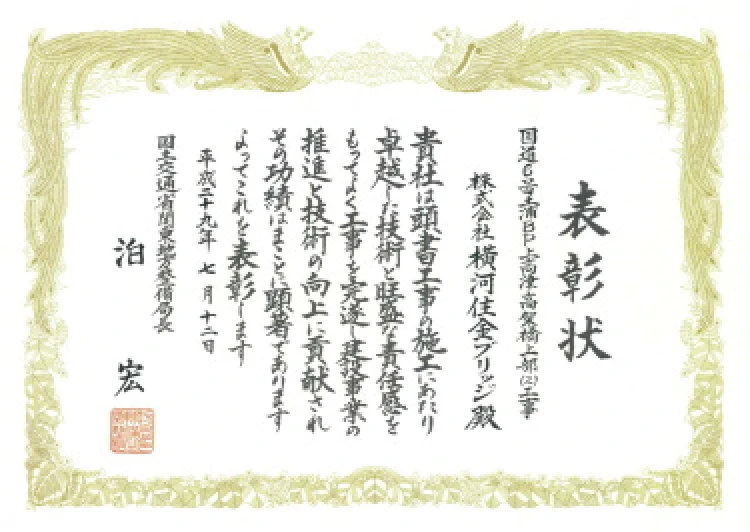 表彰状
国道6号土浦BP上高津高架橋上部(2)工事
株式会社 横河住金ブリッジ 殿
貴社は頭書工事の施工にあたり
卓越した技術と旺盛な責任感を
もってよく工事を完遂し建設事業の
推進と技術の向上に貢献され
その功績はまことに顕著であります
よってこれを表彰します
平成二十九年 七月十二日
国土交通省関東地方整備局長
泊 宏